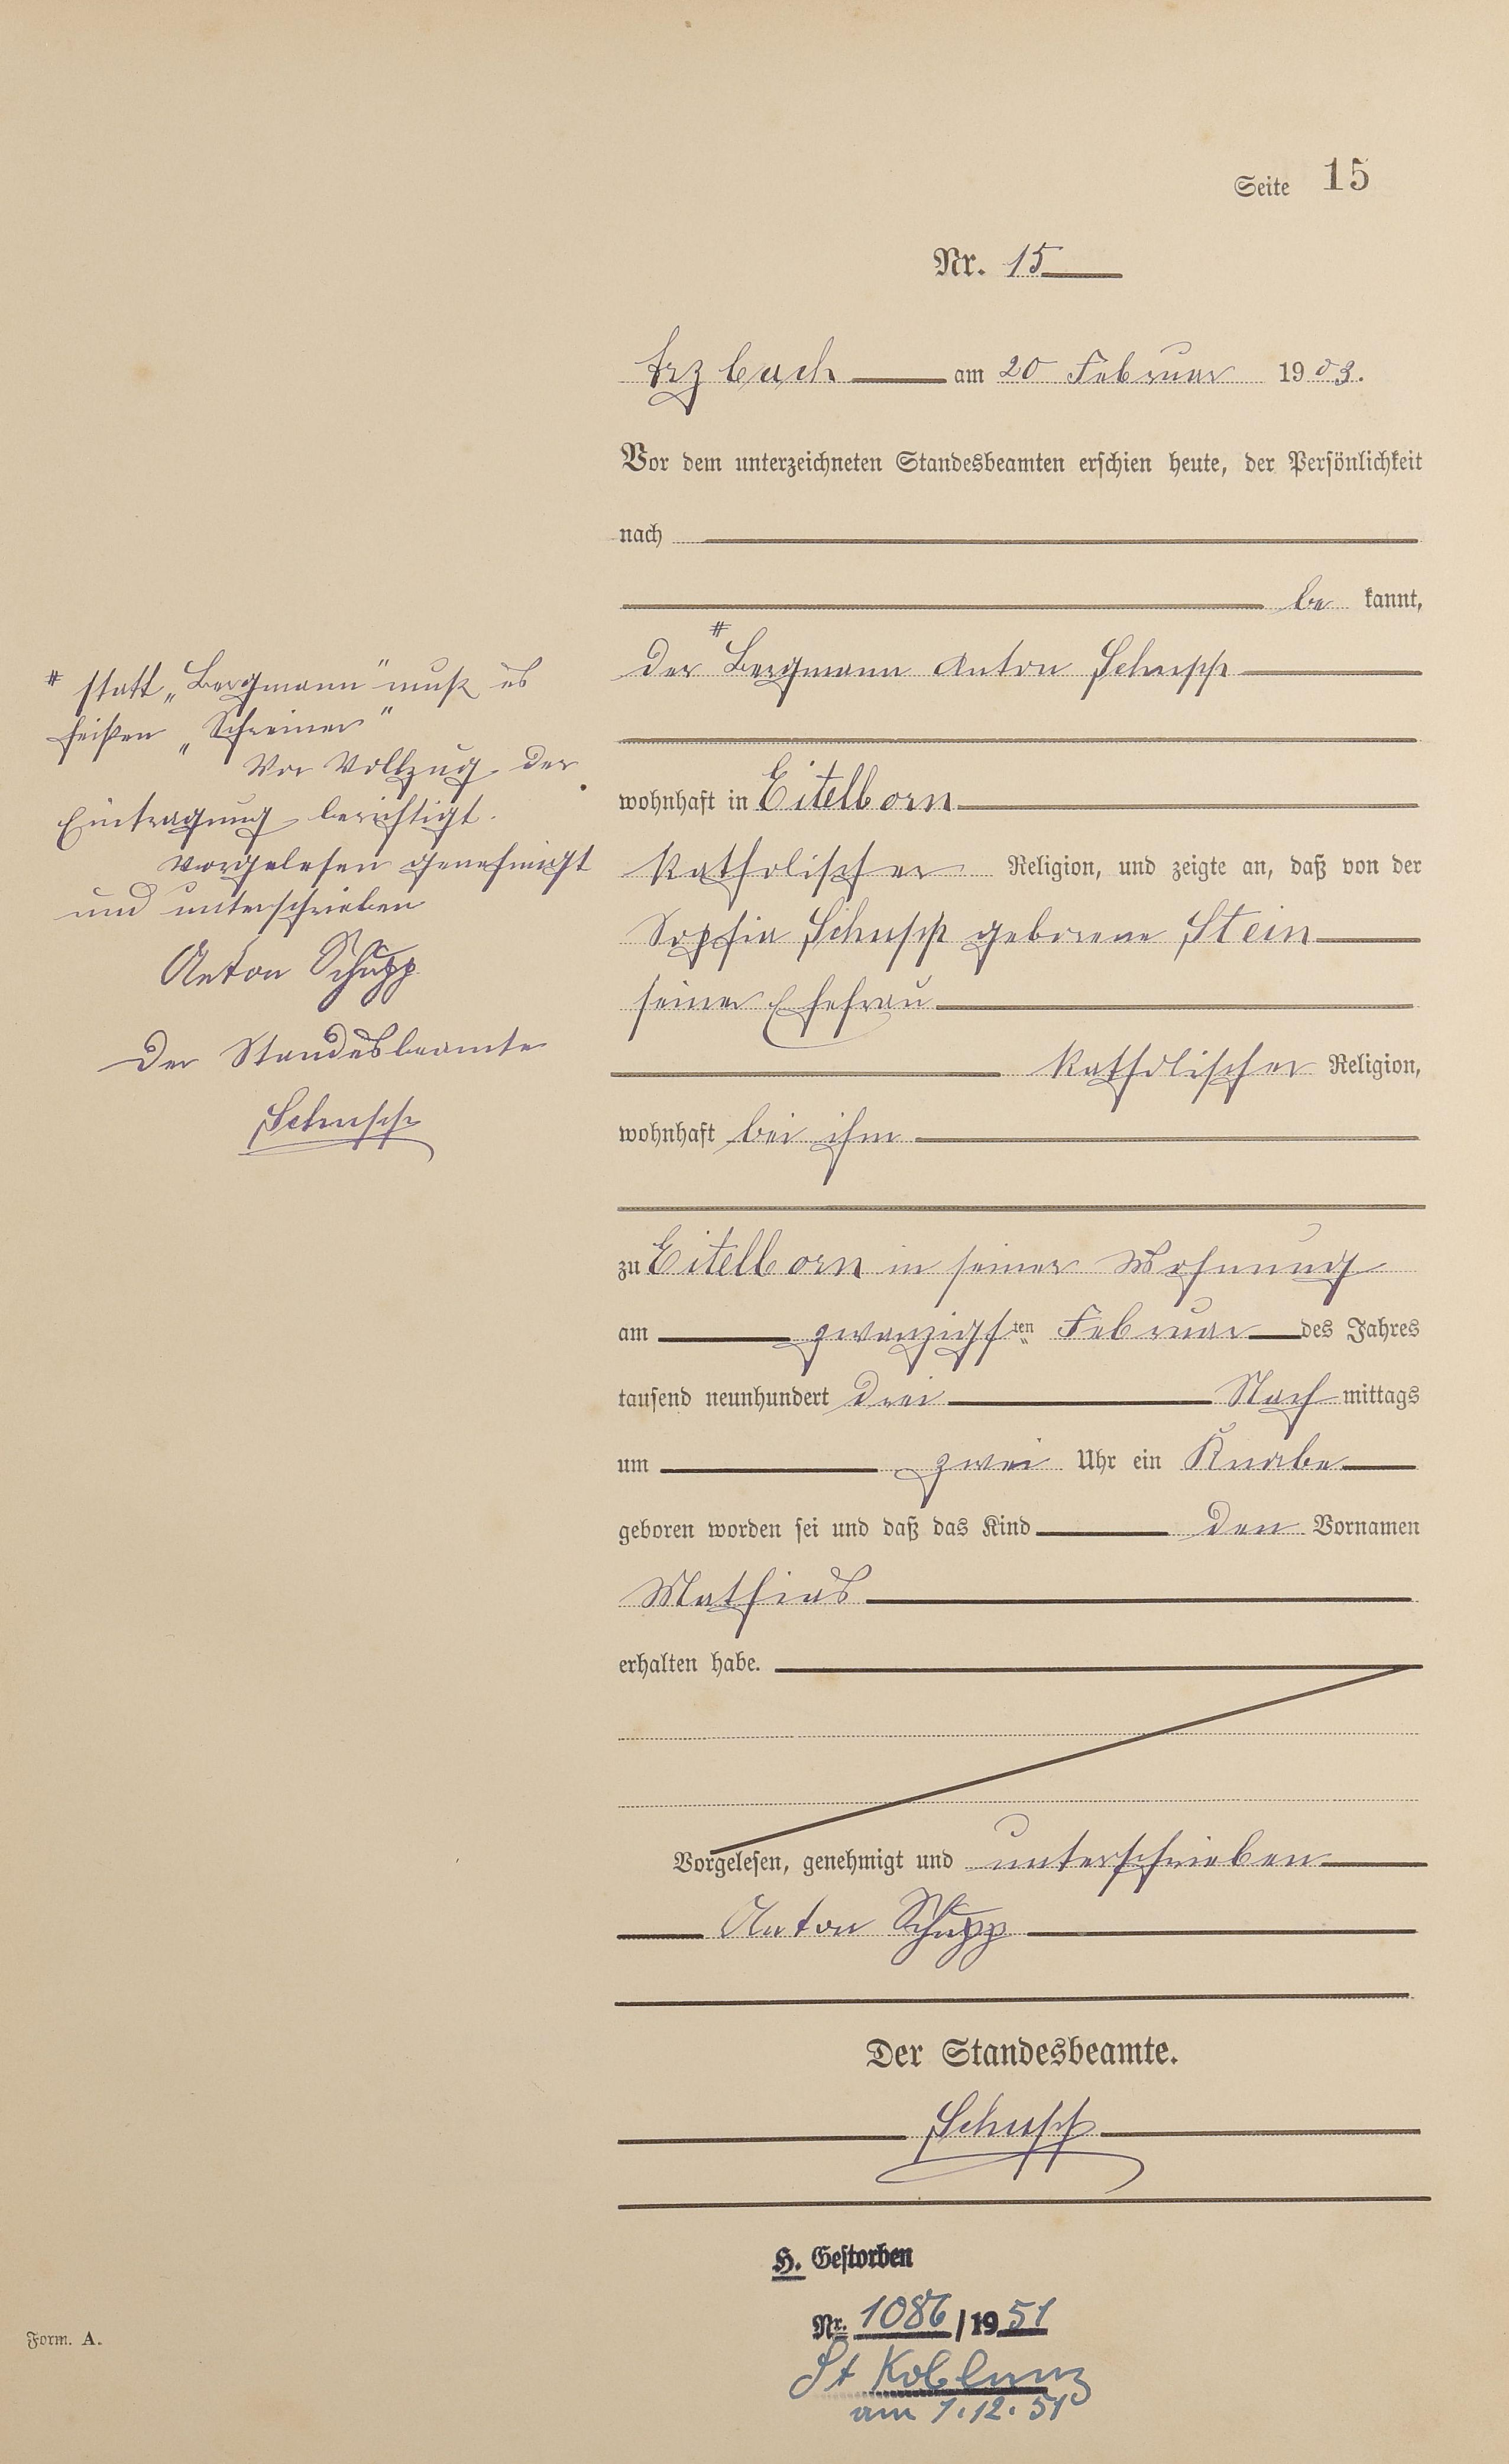 Seite 15
Nr. 15
Arzbach am 20 Februar 1903.
Vor dem unterzeichneten Standesbeamten erschien heute, der Persönlichkeit
nach
be kannt,
# der Bergmann Anton Schupp
wohnhaft in Eitelborn
katholischer Religion, und zeigte an, daß von der
Sophia Schupp geborene Stein
seiner Ehefrau
katholischer Religion,
wohnhaft bei ihm
zu Eitelborn in seiner Wohnung
am zwanzigsten Februar des Jahres
tausend neunhundert drei Nachmittags
um zwei Uhr ein Knabe
geboren worden sei und daß das Kind den Vornamen
Mathias
erhalten habe.
Vorgelesen, genehmigt und unterschrieben
Anton Schupp
Der Standesbeamte.
Schupp
# statt „Bergmann" muß es
heißen „Schreiner"
Vor Vollzug der
Eintragung berichtigt.
Vorgelesen genehmigt
und unterschrieben
Anton Schupp
Der Standesbeamte
Schupp
H. Gestorben
Nr. 1086/1951
St Koblenz
am 1.12.51
Form. A.